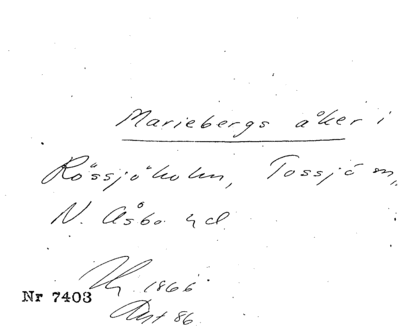 Mariebergs åker i
Rössjöholm, Tossjö sn,
N. Åsbo hd
1866
Nr 7403
86